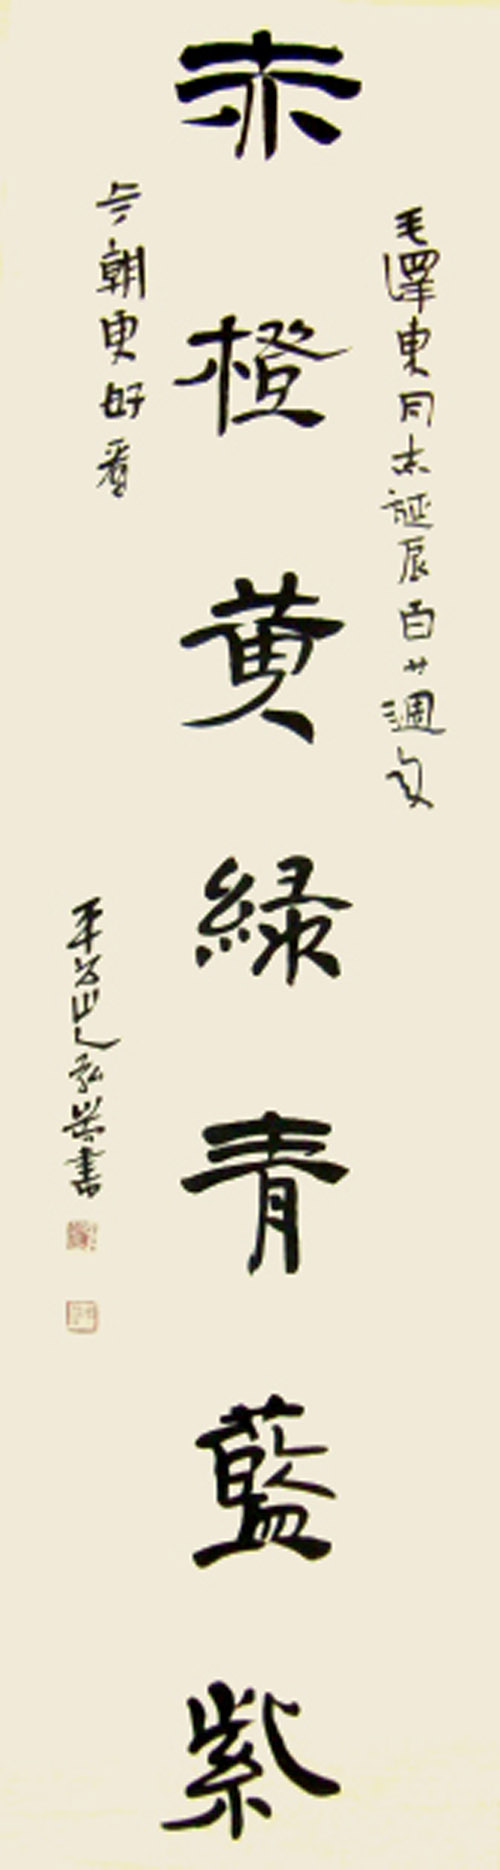 毛澤東同志誕辰百廿週年
赤橙黄緑青藍紫
今朝更好看
平公山人弘岩書